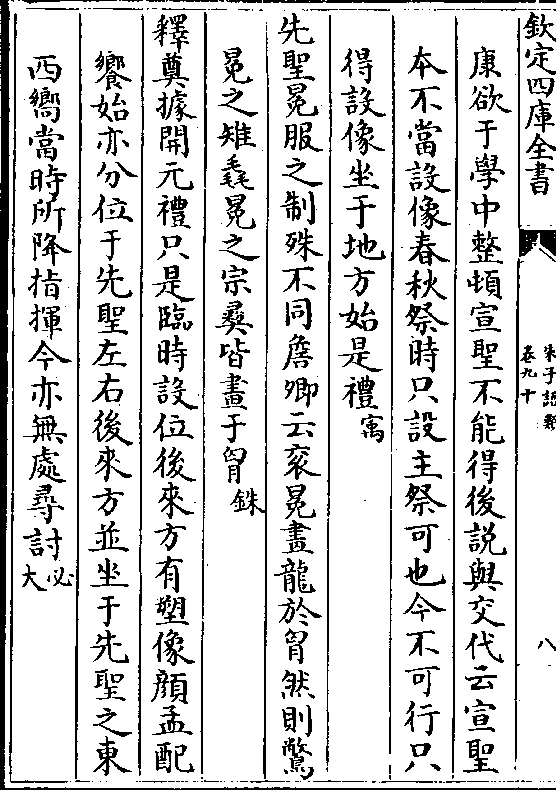 欽定四庫全書
朱子語類
卷九十
八
康欲于學中整頓宣聖不能得後説與交代云宣聖
本不當設像春秋祭時只設主祭可也今不可行只
得設像坐于地方始是禮㝢
先聖冕服之制殊不同詹卿云衮冕畫龍於胷然則鷩
冕之雉毳冕之宗彛皆畫于胷銖
釋奠據開元禮只是臨時設位後來方有塑像顔孟配
饗始亦分位于先聖左右後來方並坐于先聖之東
西嚮當時所降指揮今亦無處尋討必大